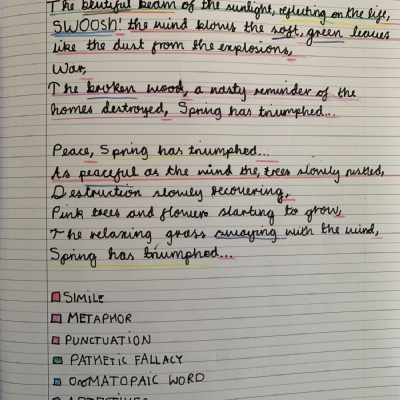 The beutiful beam of the sunlight, reflecting on the life,
SWOOSH! the wind blows the soft, green leaves
like the dust from the explosions,
War,
The broken wood, a nasty reminder of the
homes destroyed, Spring has triumphed...
Peace, Spring has triumphed...
As peaceful as the wind the, trees slowly rustled,
Destruction slowly recovering,
Pink trees and flowers starting to grow,
The relaxing grass swaying with the wind,
Spring has triumphed...
SIMILE
METAPHOR
PUNCTUATION
PATHETIC FALLACY
ONOMATOPAIC WORD